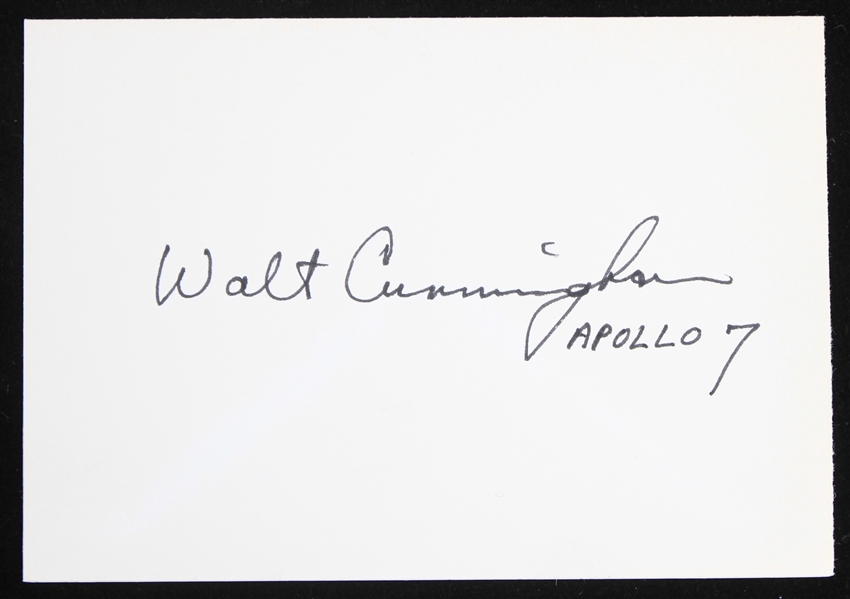 Walt Cunningham
APOLLO 7